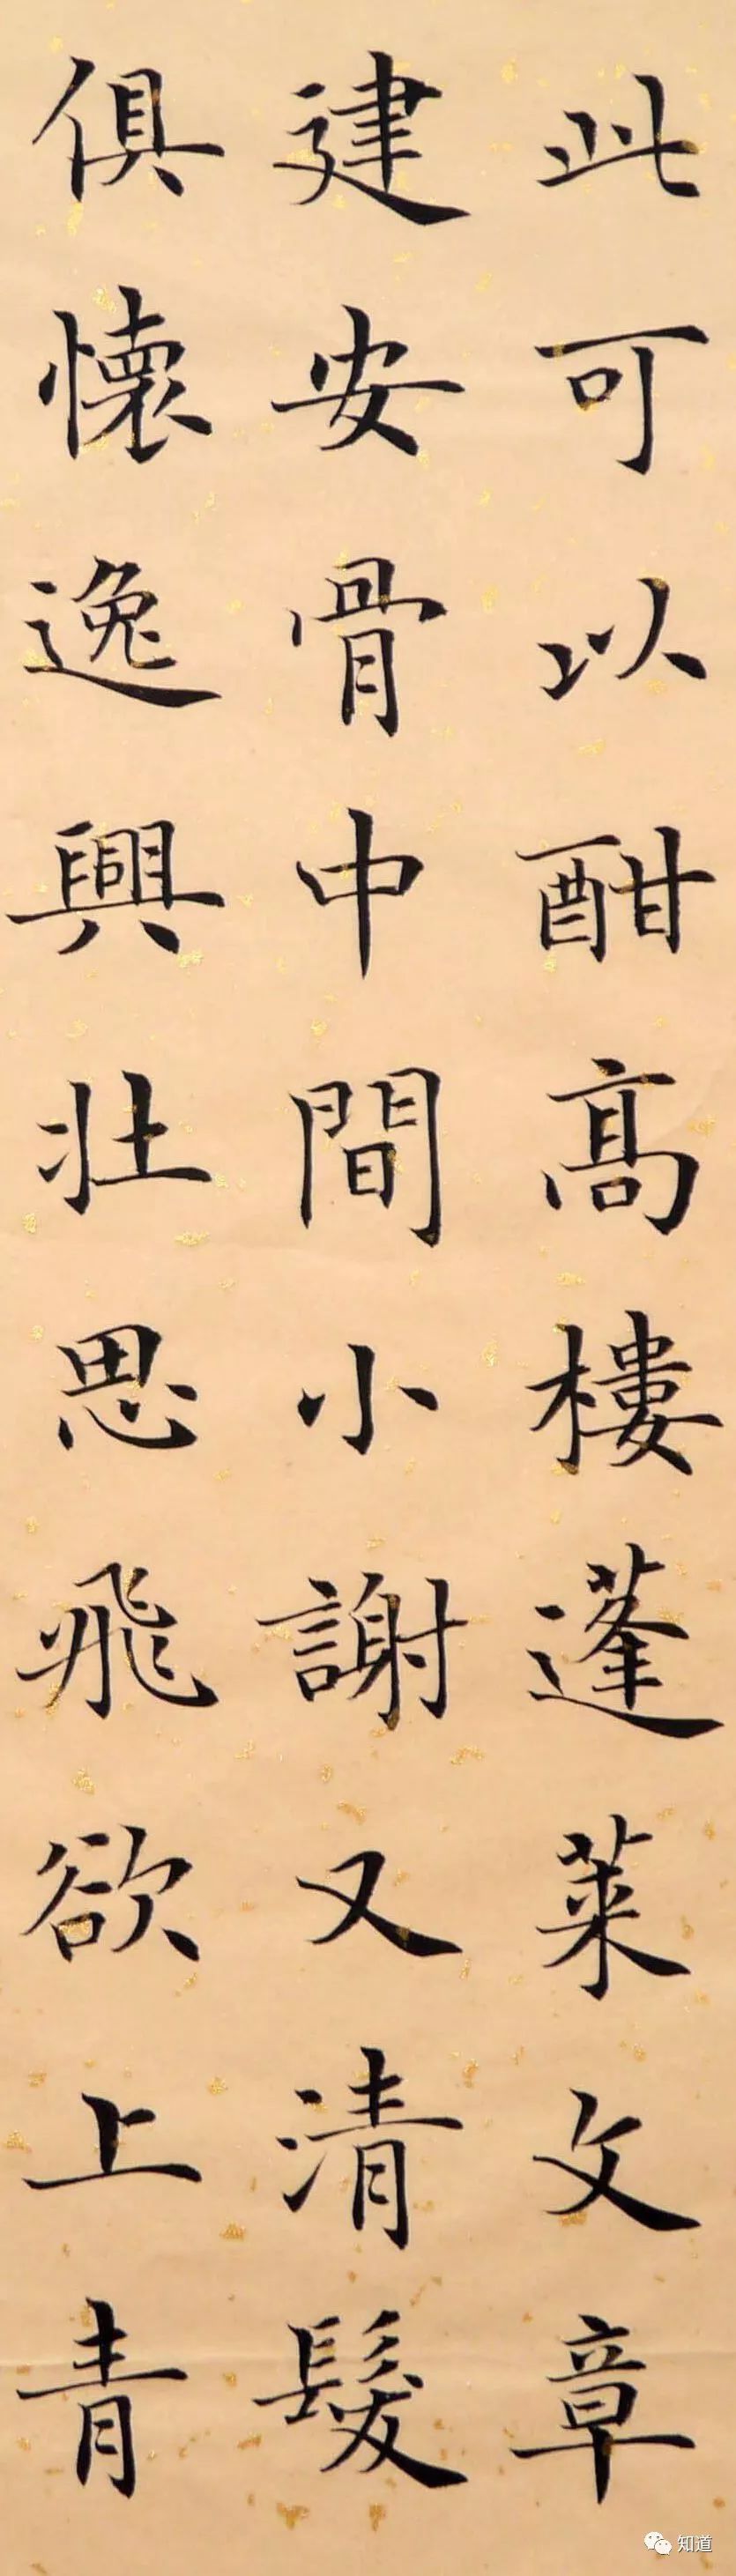 此可以酣高樓蓬萊文章
建安骨中間小謝又清髮
俱懷逸興壯思飛欲上青
知道